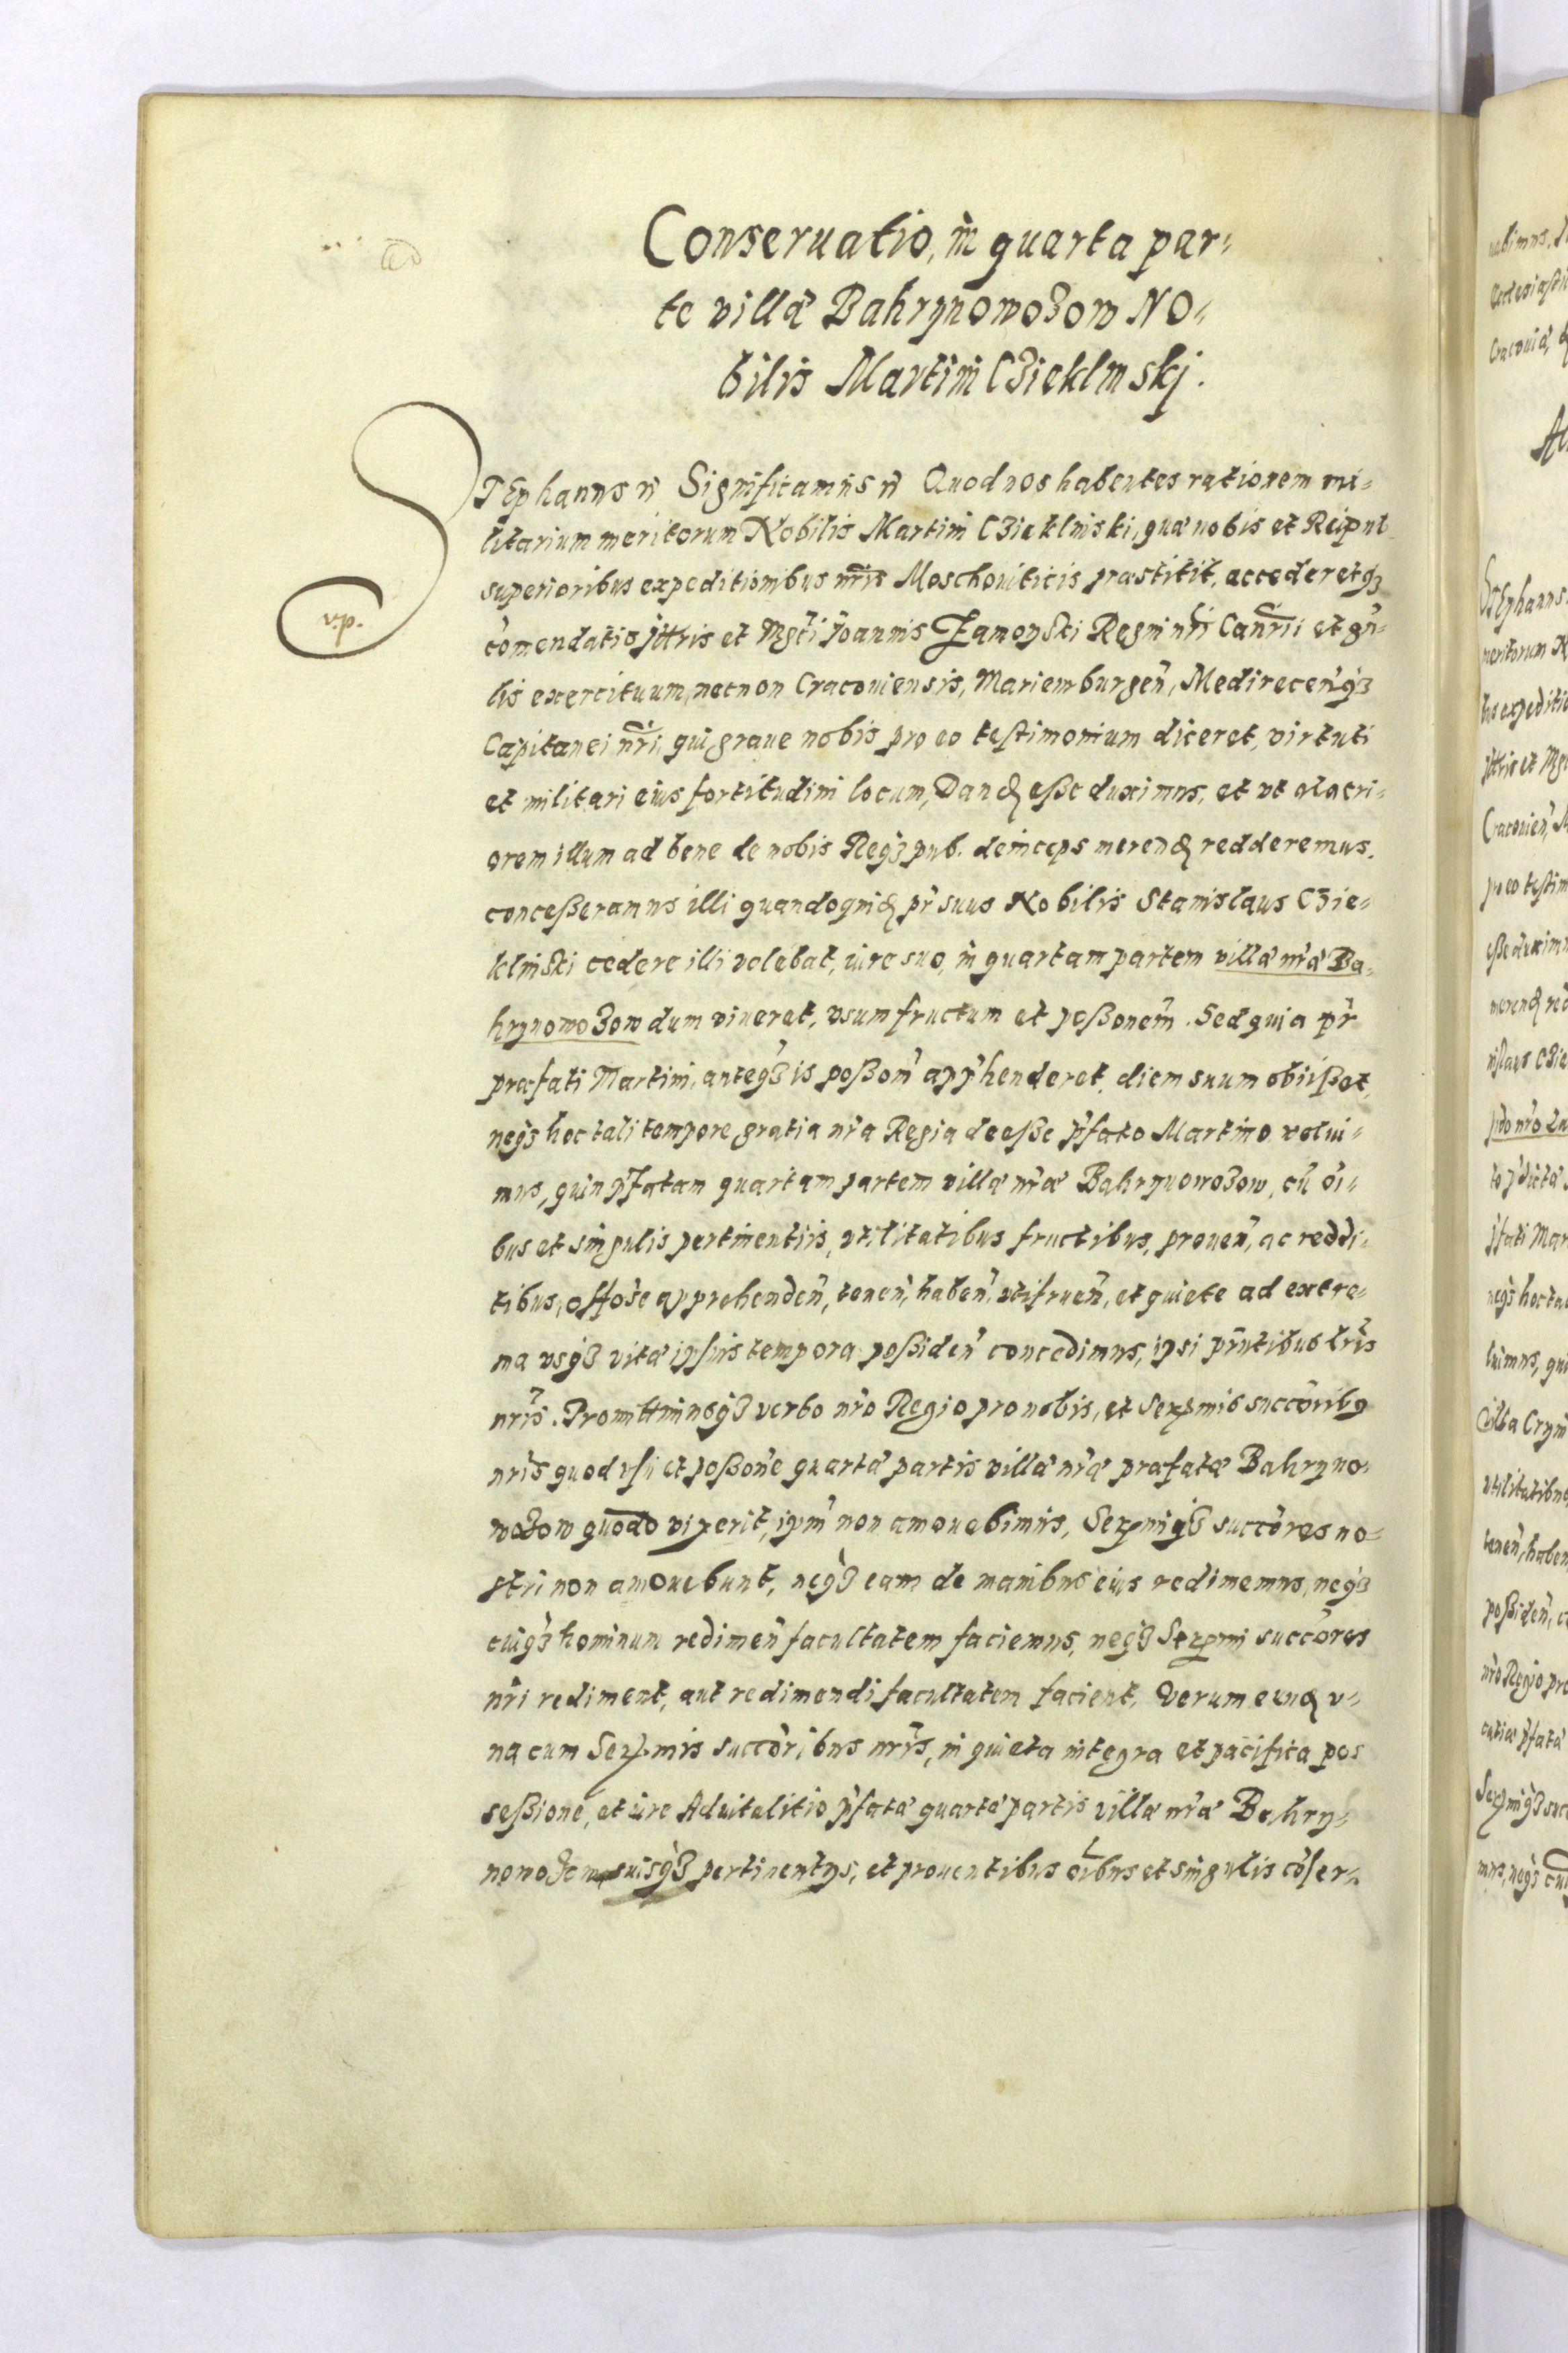 Conseruatio, in quarta par=
te villæ Bahrynowozow No=
bilis Martini Czieklinskj.
STEphanus n̄ Significamus n̄ Quod nos habentes rationem mi=
litarium meritorum Nobilis Martini Czieklinski, quæ nobis et Reipub
superioribus expeditionibus nr̃is Moschouiticis præstitit, accederetqȝ
v.p.
cõmendatio Jllris et Mgci Joannis Zamoyski Regni nr̃i Canrii et gñ=
lis exercituum, necnon Cracouiensis, Mariemburgeñ, Medirecen̄qȝ
Capitanei nr̃i, qui graue nobis pro eo testimonium diceret, virtuti
et militari eius fortitudini locum, Dandꝭ eße duximus, et vt alacri=
orem illum ad bene de nobis Reqȝ pub. deinceps merendꝭ redderemus.
conceßeramus illi quandoquidꝭ pr̃ suus Nobilis Stanislaus Czie=
klinski cedere illi volebat, iure suo, in quartam partem villæ nr̃æ Ba=
hrynowozow dum viueret, vsumfructum et poßonem̃. Sed quia pr̃
præfati Martini, anteqȝ is poßom̃ app̃henderet, diem suum obiißet,
neqȝ hoc tali tempore gratia nr̃a Regia deeße p̃fato Martino volui=
mus, quin p̃fatam quartam partem villæ nr̃æ Bahrynowozow, cũ oĩ=
bus et singulis pertinentiis, vtilitatibus fructibus, proueñ, ac reddi=
tibus, offose apprehendeñ, teneñ, habeñ, vtifrueñ, et quiete ad extre=
ma vsqȝ vitæ ipsius tempora poßideñ concedimus, ipsi p̃ntibus lr̃is
nr̃is. Promittimusqȝ verbo nr̃o Regio pro nobis, et Serꝑmis succoribꝯ
nr̃is quod vsu et poßone quartæ partis villæ nr̃æ præfatæ Bahryno=
wozow quodo vixerit, ipm̃ non amouebimus, Serꝑmiqȝ succores no=
stri non amouebunt, neqȝ eam de manibus eius redimemus, neqȝ
cuiqȝ hominum redimeñ facultatem faciemus, neqȝ Serꝑmi succores
nr̃i rediment, aut redimendi facultatem facient, Verum eundꝭ v=
na cum Serꝑmis succoribus nr̃is, in quieta integra et pacifica pos
seßione, et iure Aduitalitio p̃fatæ quartæ partis villæ nr̃æ Bahry=
nowozow, suisqȝ pertinentys, et prouentibus oĩbus et singulis cõser=